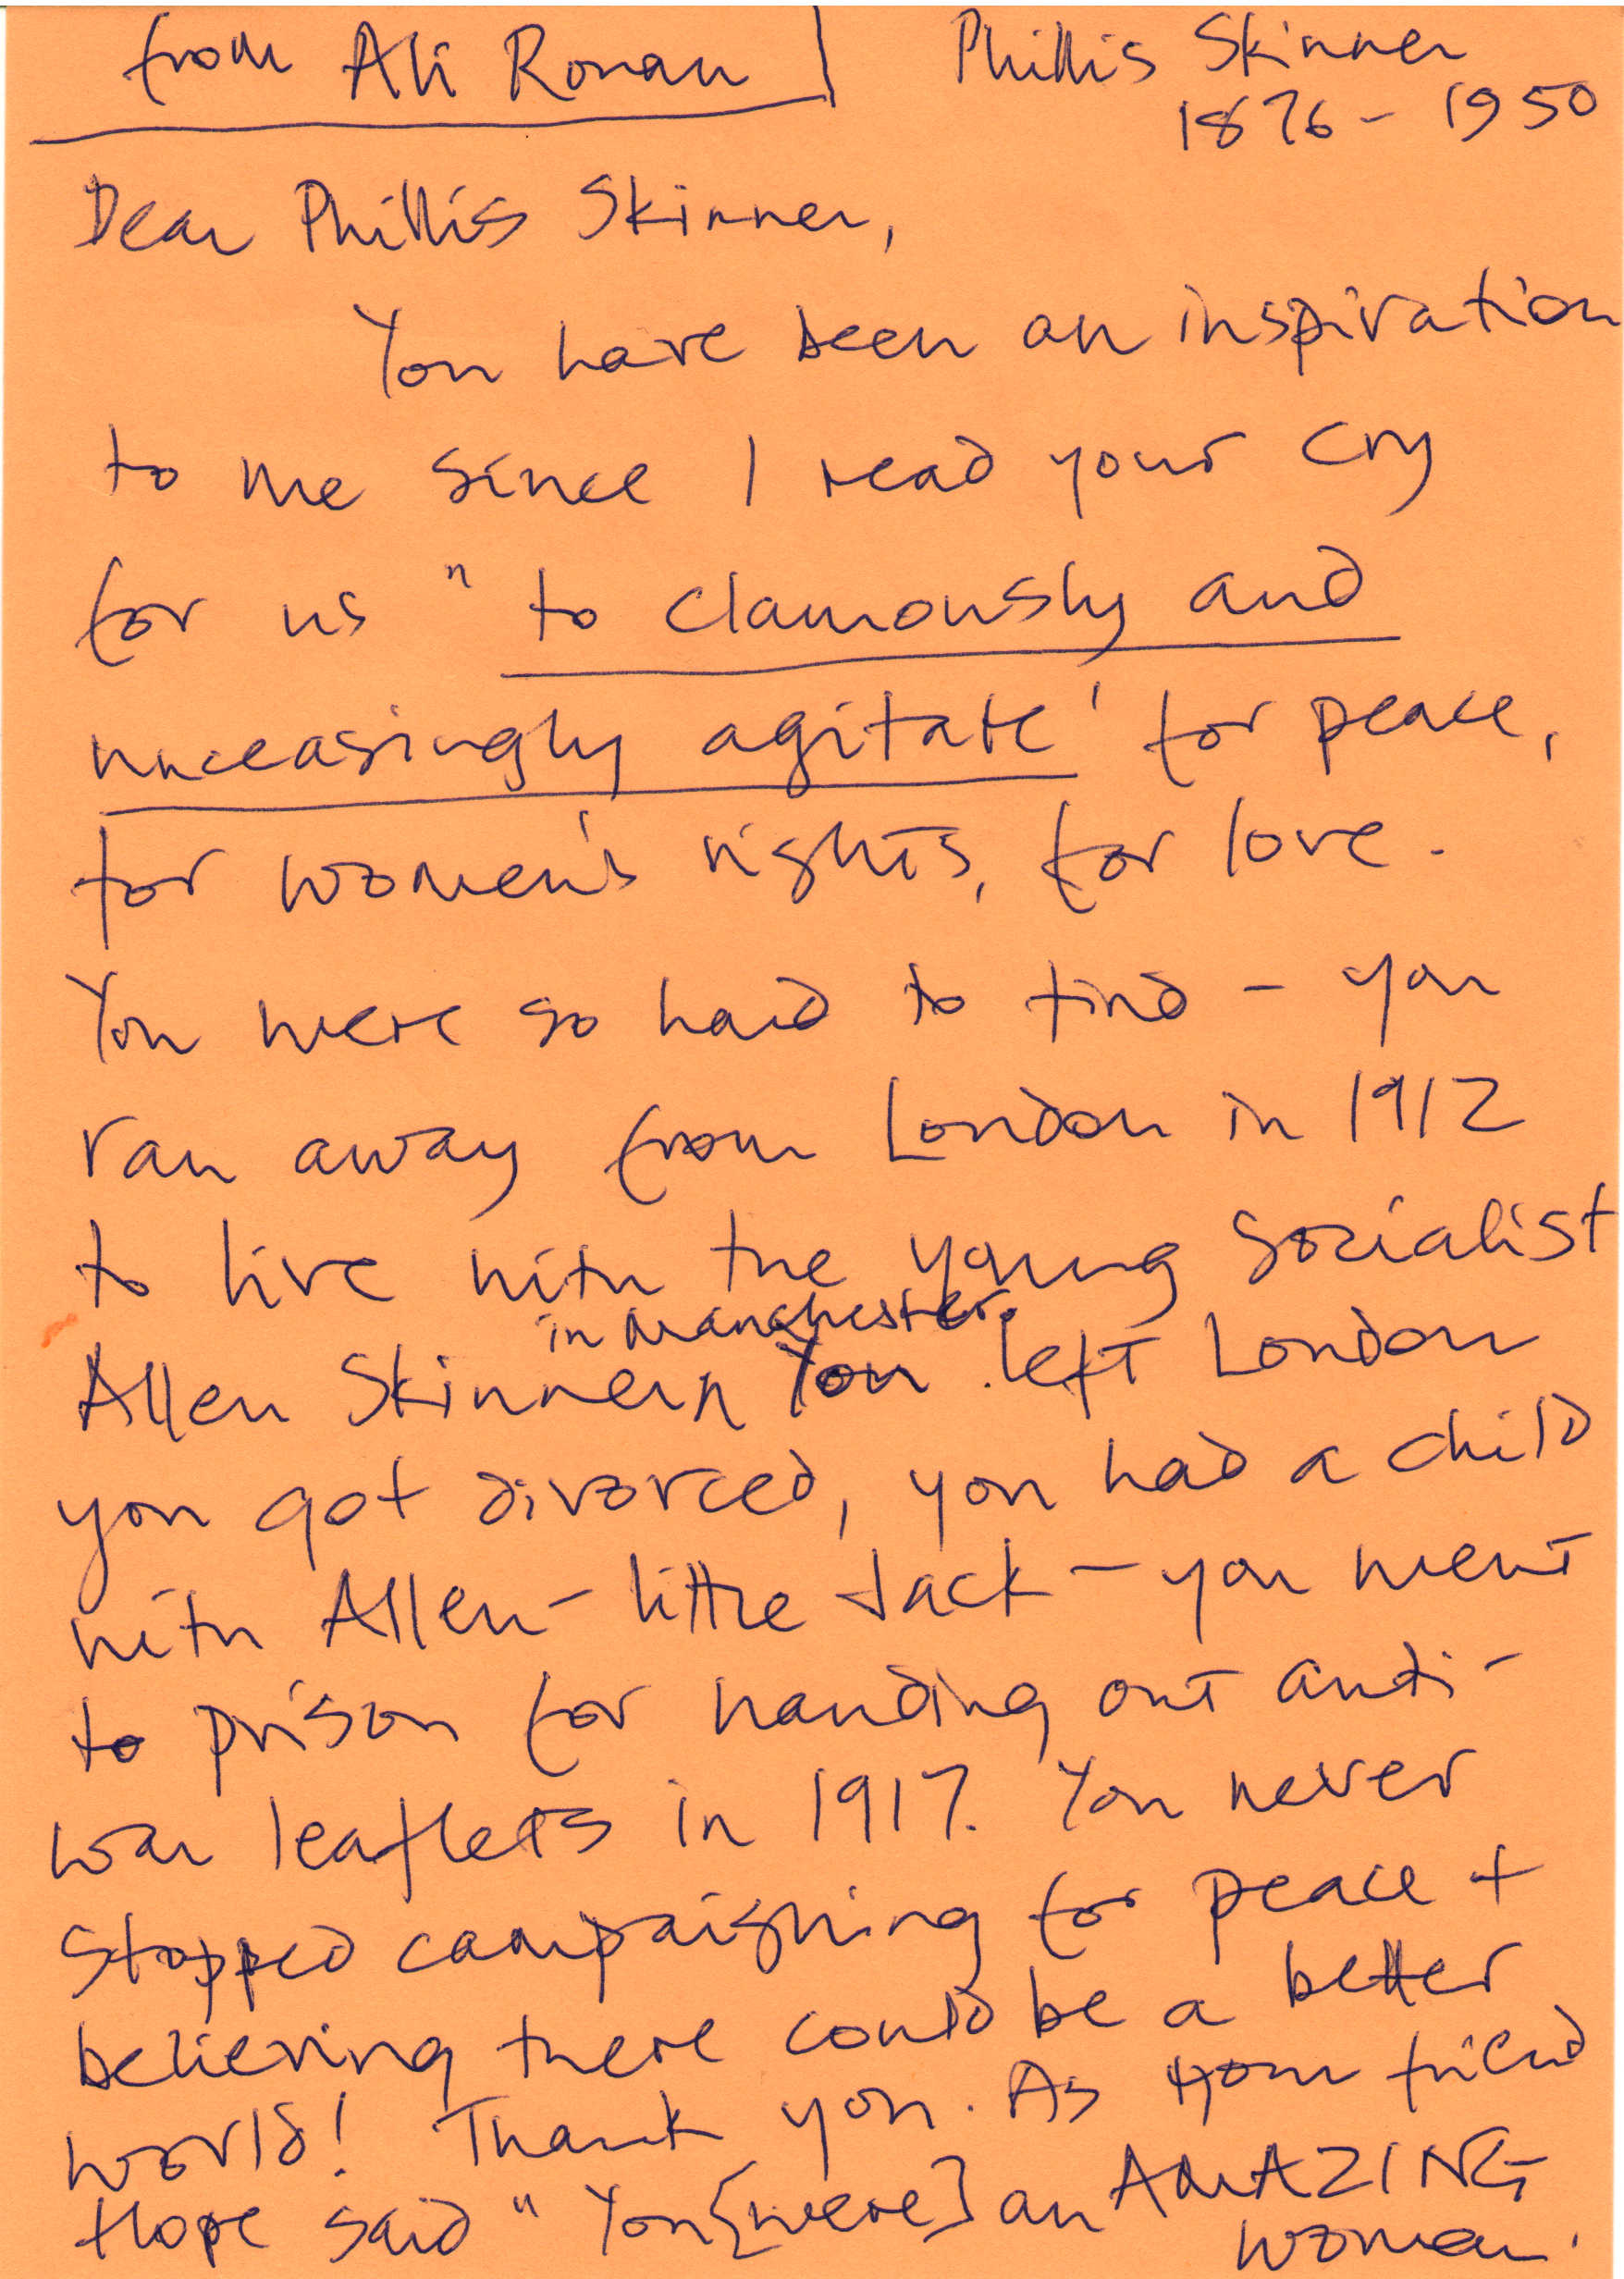 from Ali Ronan
Phillis Skinner
1876 - 1950
Dear Phillis Skinner,
You have been an inspiration
to me since I read your cry
for us "to clamously and
unceasingly agitate' for peace,
for women's rights, for love.
You were so hard to find - you
ran away from London in 1912
to live with the young socialist
in Manchester.
Allen Skinner You left London
you got divorced, you had a child
with Allen - little Jack - you went
to prison for handing out anti-
war leaflets in 1917. You never
stopped campaigning for peace +
believing there could be a better
world! Thank you. As your friend
Hope said "You {were} an AMAZING
woman.'